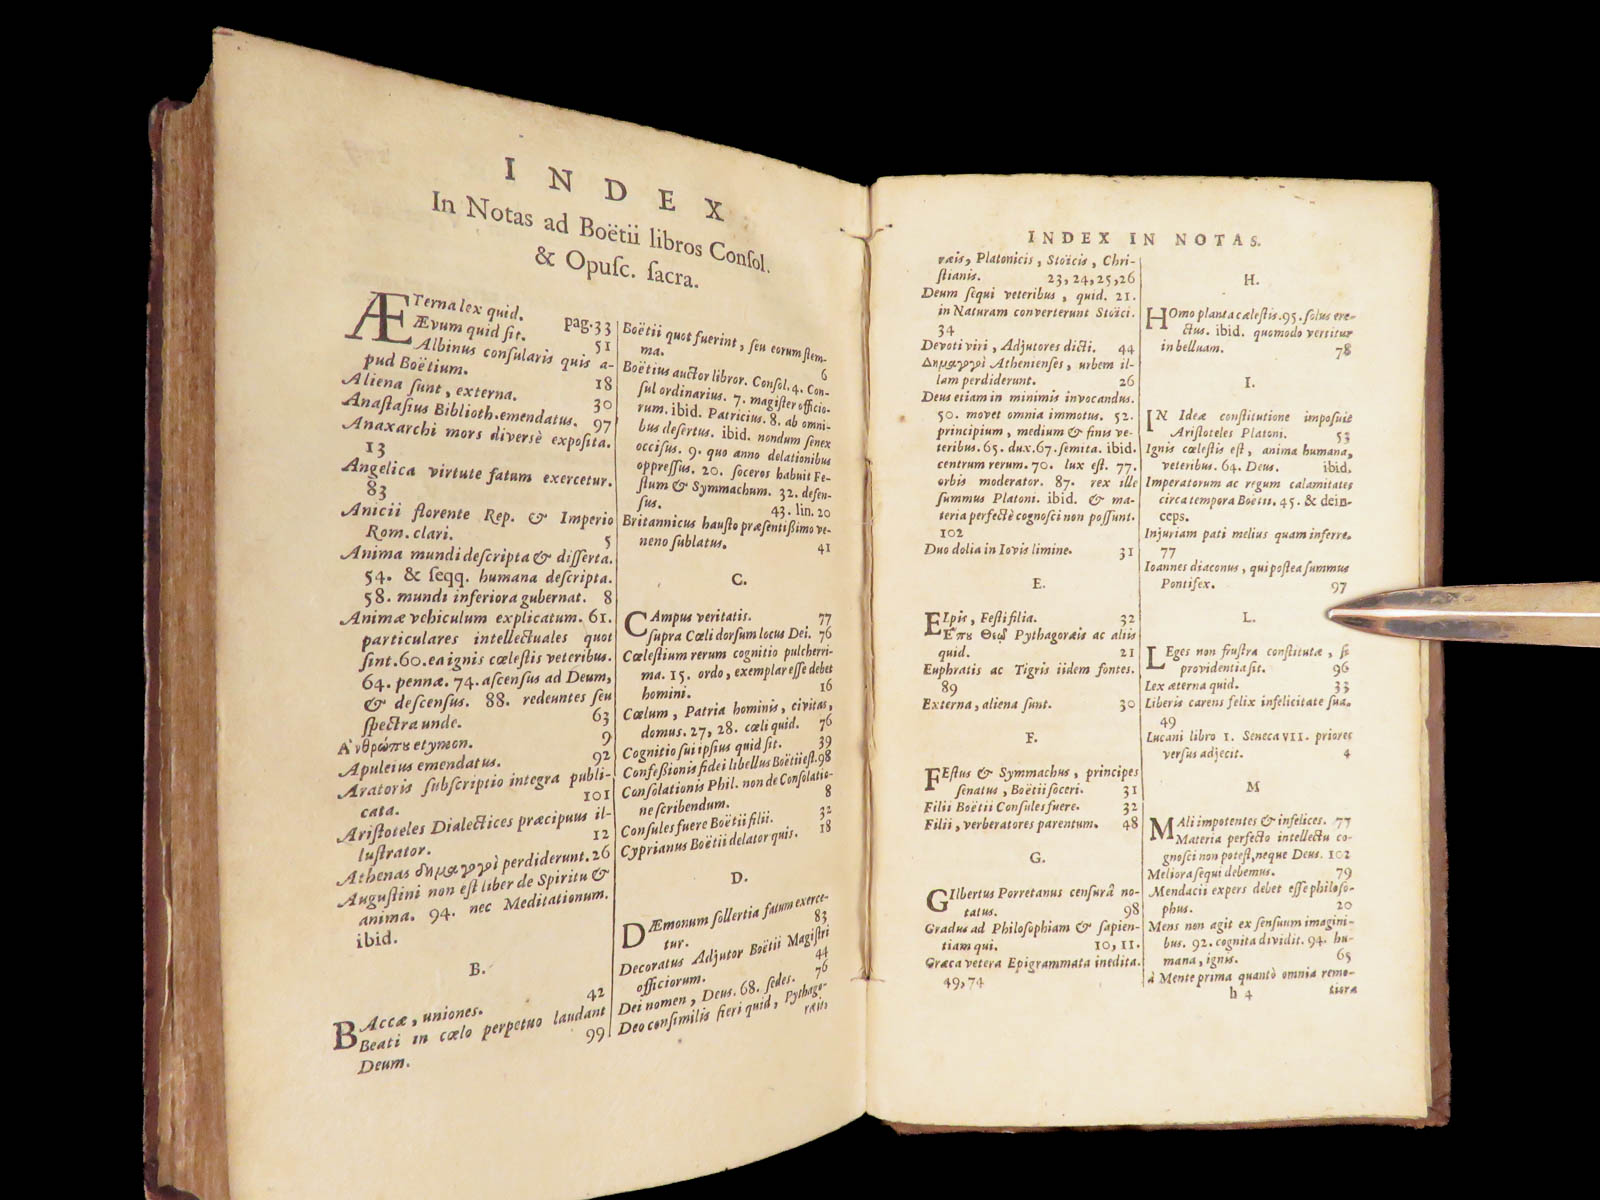 INDEX
In Notas ad Boëtii libros Conſol.
& Opuſc. ſacra.
ÆTerna lex quid. pag.33
Ævum quid ſit. 51
Albinus conſularis quis a-
pud Boëtium. 18
Aliena ſunt, externa. 30
Anaſtaſius Biblioth. emendatus. 97
Anaxarchi mors diverſè expoſita.
13
Angelica virtute fatum exercetur.
83
Anicii florente Rep. & Imperio
Rom. clari. 5
Anima mundi deſcripta & diſſerta.
54. & ſeqq. humana deſcripta.
58. mundi inferiora gubernat. 8
Animæ vehiculum explicatum. 61.
particulares intellectuales quot
ſint. 60. ea ignis cœleſtis veteribus.
64. pennæ. 74. aſcenſus ad Deum,
& deſcenſus. 88. redeuntes ſeu
ſpectra unde. 63
Ἀνθρώπου etymon. 9
Apuleius emendatus. 92
Aratoris ſubſcriptio integra publi-
cata. 101
Ariſtoteles Dialectices præcipuus il-
luſtrator. 12
Athenas δημαγωγοὶ perdiderunt. 26
Auguſtini non eſt liber de Spiritu &
anima. 94. nec Meditationum.
ibid.
B.
BAccæ, uniones. 42
Beati in cœlo perpetuo laudant
Deum. 99
Boëtii quot fuerint, ſeu eorum ſtem-
ma. 6
Boëtius auctor libror. Conſol. 4. Con-
ſul ordinarius. 7. magiſter officio-
rum. ibid. Patricius. 8. ab omni-
bus deſertus. ibid. nondum ſenex
occiſus. 9. quo anno delationibus
oppreſſus. 20. ſoceros habuit Fe-
ſtum & Symmachum. 32. defen-
ſus. 43. lin. 20
Britannicus hauſto præſentiſſimo ve-
neno ſublatus. 41
C.
CAmpus veritatis. 77
ſupra Cœli dorſum locus Dei. 76
Cœleſtium rerum cognitio pulcherri-
ma. 15. ordo, exemplar eſſe debet
homini. 16
Cœlum, Patria hominis, civitas,
domus. 27, 28. cœli quid. 76
Cognitio ſui ipſius quid ſit. 39
Confeſſionis fidei libellus Boëtii eſt. 98
Conſolationis Phil. non de Conſolatio-
ne ſcribendum. 8
Conſules fuere Boëtii filii. 32
Cyprianus Boëtii delator quis. 18
D.
DÆmonum ſollertia fatum exerce-
tur. 83
Decoratus Adjutor Boëtii Magiſtri
officiorum. 44
Dei nomen, Deus. 68. ſedes. 76
Deo conſimilis fieri quid, Pythago-
ræis,
INDEX IN NOTAS.
ræis, Platonicis, Stoïcis, Chri-
ſtianis. 23, 24, 25, 26
Deum ſequi veteribus, quid. 21.
in Naturam converterunt Stoïci.
34
Devoti viri, Adjutores dicti. 44
Δημαγωγοὶ Athenienſes, urbem il-
lam perdiderunt. 26
Deus etiam in minimis invocandus.
50. movet omnia immotus. 52.
principium, medium & finis ve-
teribus. 65. dux. 67. ſemita. ibid.
centrum rerum. 70. lux eſt. 77.
orbis moderator. 87. rex ille
ſummus Platoni. ibid. & ma-
teria perfectè cognoſci non poſſunt.
102
Duo dolia in Iovis limine. 31
E.
ELpis, Feſti filia. 32
Ἕπου Θεῷ Pythagoræis ac aliis
quid. 21
Euphratis ac Tigris iidem fontes.
89
Externa, aliena ſunt. 30
F.
FEſtus & Symmachus, principes
ſenatus, Boëtii ſoceri. 31
Filii Boëtii Conſules fuere. 32
Filii, verberatores parentum. 48
G.
GIlbertus Porretanus cenſurâ no-
tatus. 98
Gradus ad Philoſophiam & ſapien-
tiam qui. 10, 11.
Græca vetera Epigrammata inedita.
49, 74
H.
HOmo planta cæleſtis. 95. ſolus ere-
ctus. ibid. quomodo vertitur
in belluam. 78
I.
IN Ideæ conſtitutione impoſuit
Ariſtoteles Platoni. 53
Ignis cœleſtis eſt, anima humana,
veteribus. 64. Deus. ibid.
Imperatorum ac regum calamitates
circa tempora Boëtii. 45. & dein-
ceps.
Injuriam pati melius quam inferre.
77
Ioannes diaconus, qui poſtea ſummus
Pontifex. 97
L.
LEges non fruſtra conſtitutæ, ſi
providentia ſit. 96
Lex æterna quid. 33
Liberis carens felix infelicitate ſua.
49
Lucani libro I. Seneca VII. priores
verſus adjecit. 4
M
MAli impotentes & infelices. 77
Materia perfecto intellectu co-
gnoſci non poteſt, neque Deus. 102
Meliora ſequi debemus. 79
Mendacii expers debet eſſe philoſo-
phus. 20
Mens non agit ex ſenſuum imagini-
bus. 92. cognita dividit. 94. hu-
mana, ignis. 65
à Mente prima quantò omnia remo-
h 4 tiora